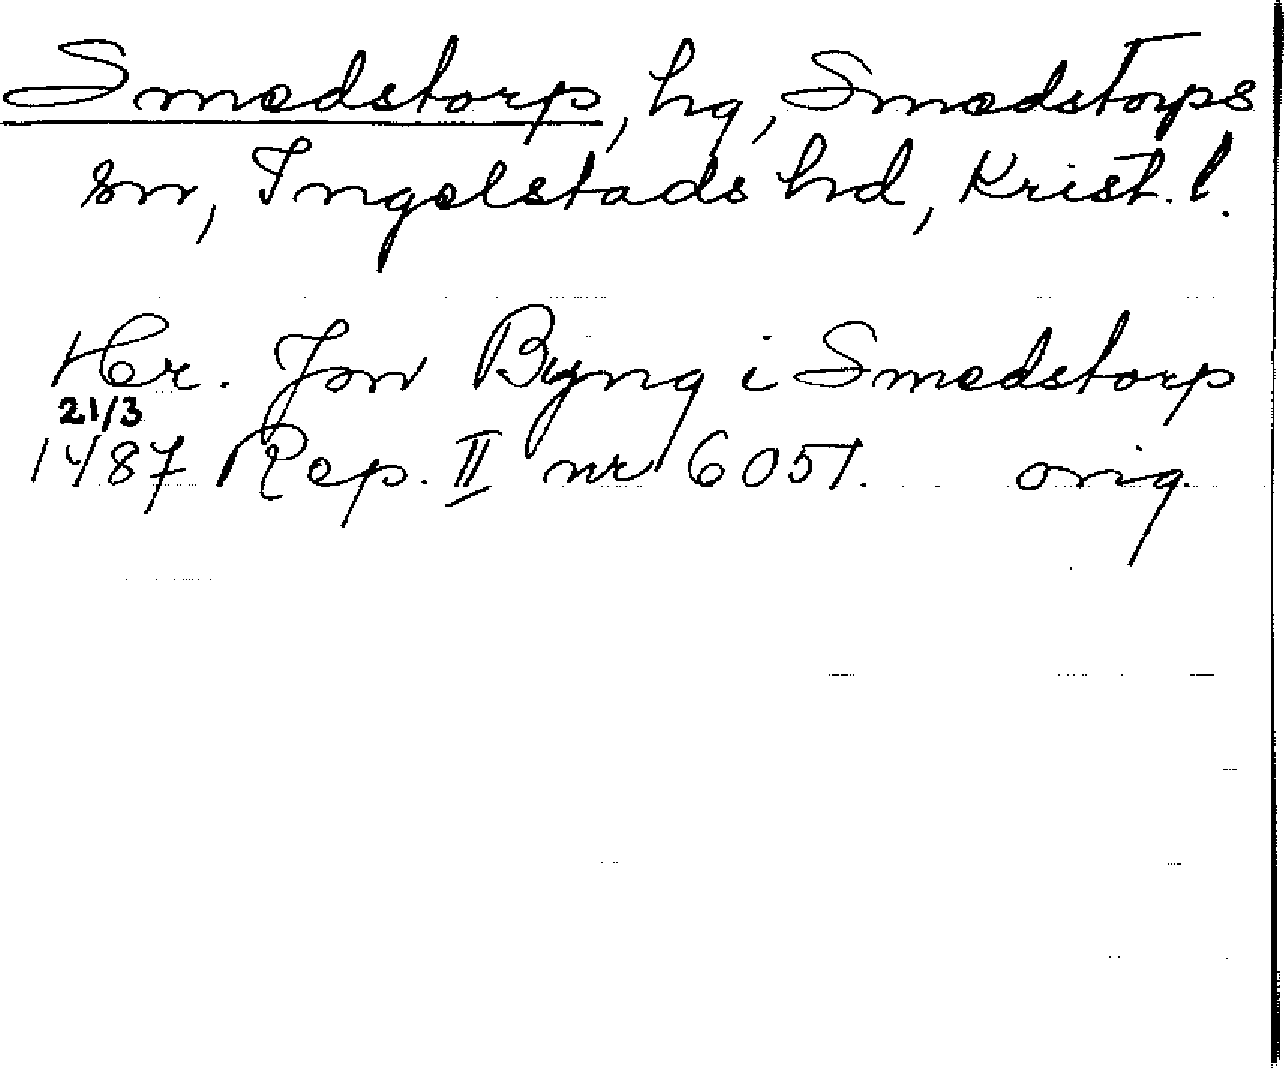 Smedstorp, hg, Smedstorps
sn, Ingelstads hd, Krist. l.
Her. Jon Byng i Smedstorp
21/3
1487 Rep. II nr 6051. orig.